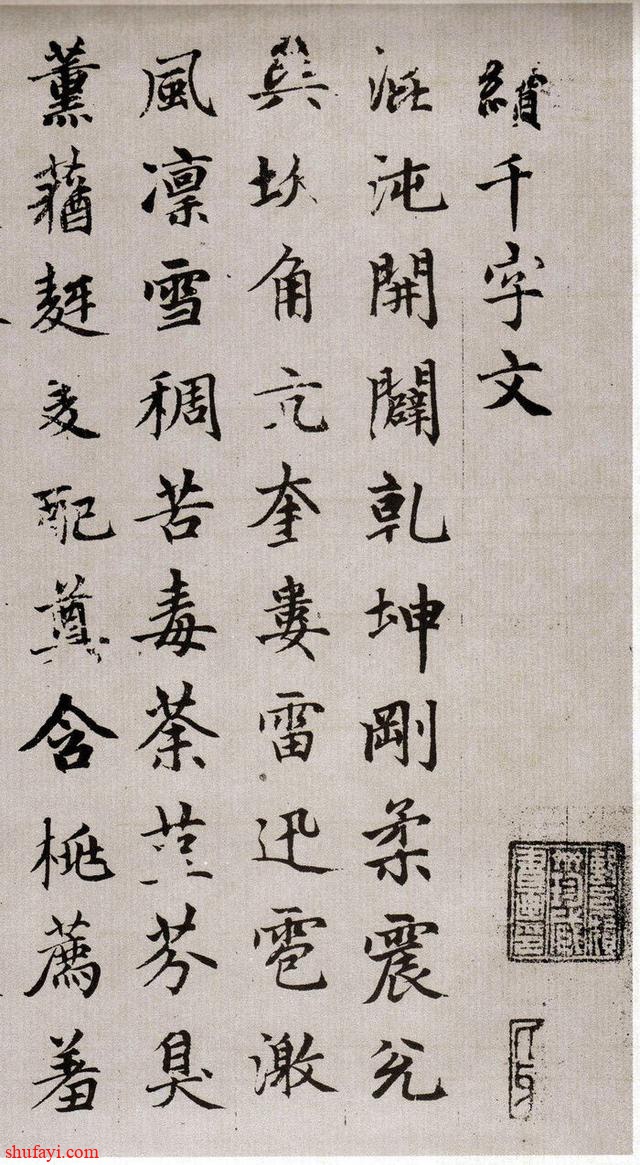 續千字文
混沌開闢乾坤剛柔震兊
巽坎角亢奎婁雷迅雹激
風凛雪稠苦毒荼芬臭
薰蕕麰麥配含桃薦羞
shufayi.com